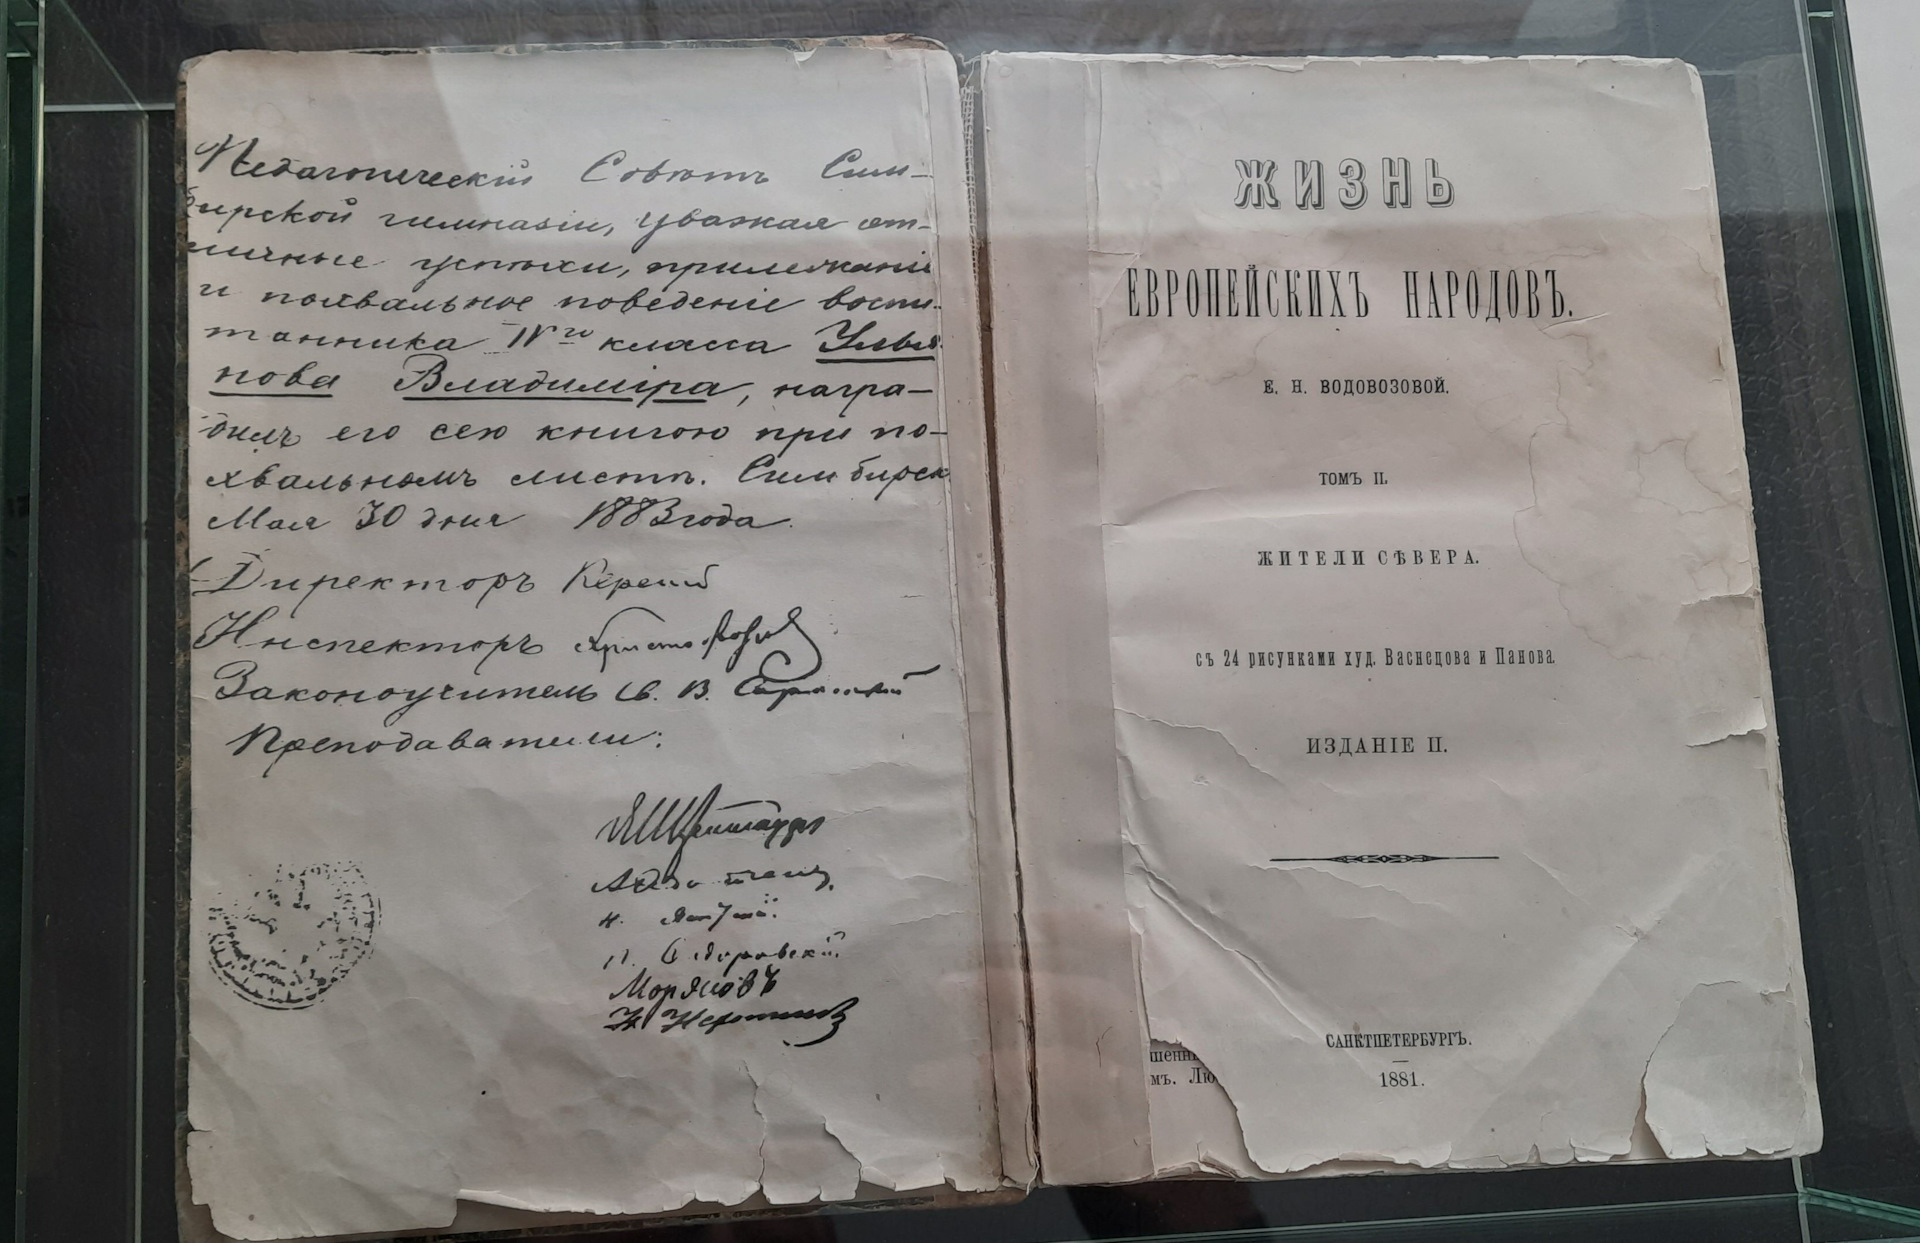 Педагогическій Совѣтъ Сим-
бирской гимназіи, уважая от-
личные успѣхи, прилежаніе
и похвальное поведеніе воспи-
танника IV го класса Улья-
нова Владиміра, награ-
дилъ его сею книгою при по-
хвальномъ листѣ. Симбирскъ
Мая 30 дня 1883 года.
Директоръ Керенскій
Инспекторъ Христофоровъ
Законоучитель Св. В.
Преподаватели:
А.
Н.
П. Ѳедоровскій
Моряковъ
Н. Нехотяевъ
ЖИЗНЬ
ЕВРОПЕЙСКИХЪ НАРОДОВЪ.
Е. Н. ВОДОВОЗОВОЙ.
ТОМЪ II.
ЖИТЕЛИ СѢВЕРА.
съ 24 рисунками худ. Васнецова и Панова.
ИЗДАНІЕ II.
САНКТПЕТЕРБУРГЪ.
1881.
шенн
мъ. Лю